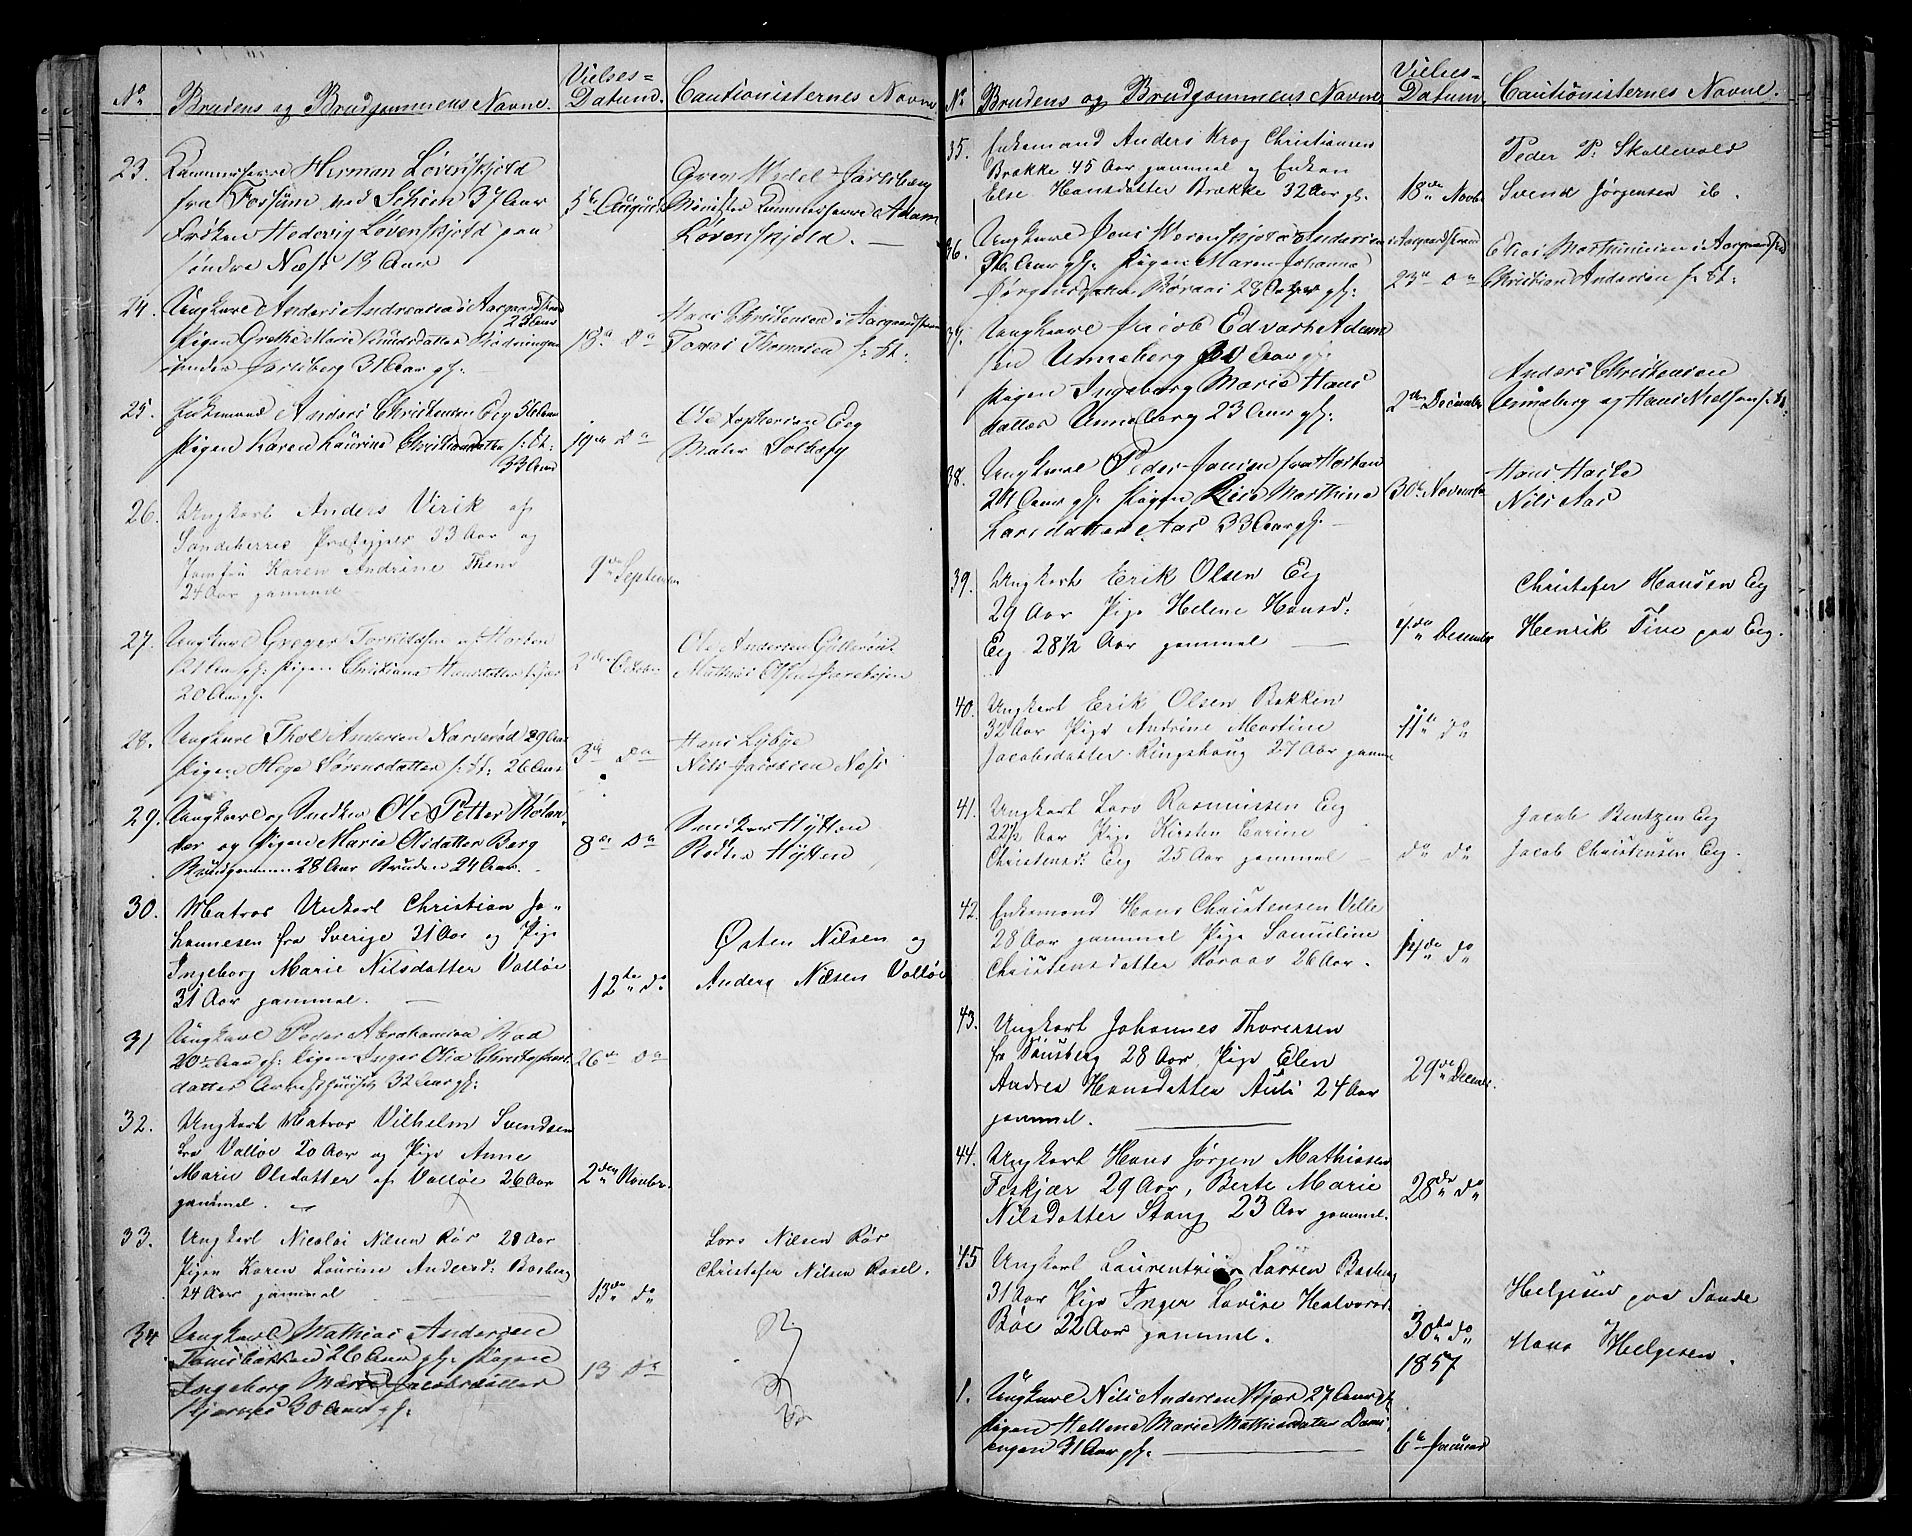 No Brudens og Brudgommens Navne. Vielses= Datum. Cautionisternes Navne
23. Kammerherre Herman Løvenskjold
fra Fossum ved Schien 37 Aar
Frøken Hedevig Løvenskjold paa
søndre Næs 18 Aar
5te August
Grev Wedel-Jarlsberg
Minister Kammerherre Adam
Løvenskjold.
24. Ungkarl Anders Andreassen i Aargaardstrand
23 Aar
Pigen Grethe Marie Knudsdatter
under Jarlsberg 31 Aar gl:
13de Do
Hans Christensen i Aargaardstrand
Thomesen s: St:
25. Enkemand Anders Christensen Eeg 56 Aar
Pigen Karen Laurine Christiansdatter s: St:
33 Aar
19de Do
Ole Eeg
Maler Solberg
26. Ungkarl Anders Virik af
Sandeherres Præstegjæld 33 Aar og
Jomfru Karen Andrine Them
24 Aar gammel
9de September
27. Ungkarl Greger Torkildsen af Horten
21 Aar gl: Pigen Christiana Hansdatter
20 Aar gl.
2den October
Ole Andersen
Mathias Olsen
28. Ungkarl Thol Andersen Narverød 29 Aar
Pigen Hege Sørensdatter s: St: 26 Aar
3de Do
Hans Lybye
Nils Jacobsen Næs
29. Ungkarl og Snedker Ole Petter Rolan-
der og Pigen Marie Olsdatter Berg
Brudgommen 28 Aar Bruden 24 Aar.
8de Do
Snedker Hytten
Hytten
30. Matros Unkarl Christian Jo-
hannesen fra Sverige 31 Aar og Pige
Ingeborg Marie Nilsdatter Valløe
31 Aar gammel.
12te do
Østen Nilsen og
Anders Nilsen Valløe
31 Ungkarl Peder Abrahamsen Rad
20½ Aar gl: Pigen Inger Olea Christophers
datter 32 Aar gl:
26de Do
32. Ungkarl Matros Vilhelm Svendsen
fra Valløe 20 Aar og Pige Anne
Marie Olsdatter af Valløe 26 Aar
gammel.
2den Novber.
33. Ungkarl Nicolai Nilsen Rør 28 Aar
Pigen Karen Laurine Andersd: Basberg
24 Aar gammel
13de do
Lars Nilsen Rør
Christofer Nilsen Rosel.
34 Ungkarl Mathias Andersen
26 Aar gl: Pigen
Ingeborg Marie Jacobsdatter
30 Aar gl:
13 Do
No Brudens og Brudgommens Navne Vielses- Datum Cautionisternes Navne.
35. Enkemand Anders Krog Christiansen
Brække 45 Aar gammel og Enken
Else Hansdatter Brække 32 Aar gl.
18de Novbr
Peder P: Skallevold
Svend Jørgensen ib.
36. Ungkarl Jens Werenskjold Andersen i Aargaardstrand
Aar gl: Pigen Maren Johanna
Jørgensdatter Røraas 28 Aar gl:
23de Do
Elias Marthinsen i Aargaardstrand
Christian Andersen s: St:
37. Ungkarl Jacob Edvart Adam
sen Unneberg Aar gl:
Pigen Ingeborg Marie Hans
datter Unneberg 23 Aar gl:
2den December
Anders Christensen
Unneberg og Hans Nielsen s: St:
38. Ungkarl Peder Jansen fra Horten
24 Aar gl. Pigen Lise Marthine
Larsdatter Aas 33 Aar gl.
30te November
Hans
Nils Aas
39. Ungkarl Erik Olsen Eeg
29 Aar Pige Helene Hansd:
Eeg 28½ Aar gammel
Desember
Christofer Hansen Eeg
Henrik Tive paa Eeg.
40. Ungkarl Erik Olsen Bakken
32 Aar Pige Andrine Martine
Jacobsdatter Ringshaug 27 Aar gamm
11te do
41. Ungkarl Lars Rasmussen Eeg
22½ Aar Pige Kirsten Carine
Christensd: Eeg 25 Aar gammel
do do
Jacob Bentzen Eeg
Jacob Christensen Eeg.
42. Enkemand Hans Christensen Velle
28 Aar gammel Pige Samuline
Christensdatter Røraas 26 Aar.
do
43. Ungkarl Johannes Thoresen
fra Tønsberg 28 Aar, Pige Elen
Andrea Hansdatter Auli 24 Aar
gammel.
29de Decemb.
44. Ungkarl Hans Jørgen Mathiesen
Feskjær 29 Aar, Berte Marie
Nilsdatter Stang 23 Aar gammel.
28de do
45 Ungkarl Laurentsius Larsen Basberg
31 Aar Pige Inger Lovise Healvorsd.
Bøe 22 Aar gammel.
30te do
Helgesen paa Sande
Hans Helgesen.
1857
1. Ungkarl Nils Andersen Kjær 27 Aar gl
Pigen Hellene Marie Mathisdatter
31 Aar gl:
6te Januar